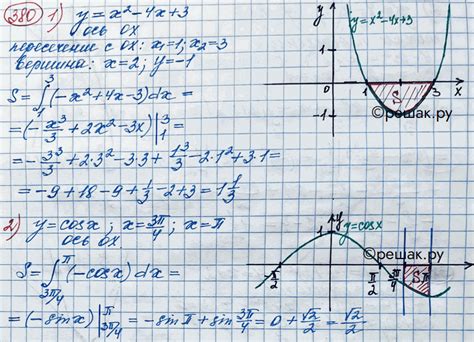 380 1) y=x²-4x+3
ось OX
пересечение с OX: x₁=1; x₂=3
вершина: x=2; y=-1
S=∫₁³(-x²+4x-3)dx=
=(-x³/3+2x²-3x)|₁³=
=-3³/3+2·3²-3·3+1³/3-2·1²+3·1=
=-9+18-9+1/3-2+3=1 1/3
y
y=x²-4x+3
0 1 3 x
S
-1
©решак.ру
2) y=cosx; x=3π/4; x=π
ось OX
S=∫_{3π/4}^{π}(-cosx)dx=
=(-sinx)|_{3π/4}^{π}=-sinπ+sin 3π/4=0+√2/2=√2/2
y
1
y=cosx
©решак.ру
-π/2 0 π/2 3π/4 S π x